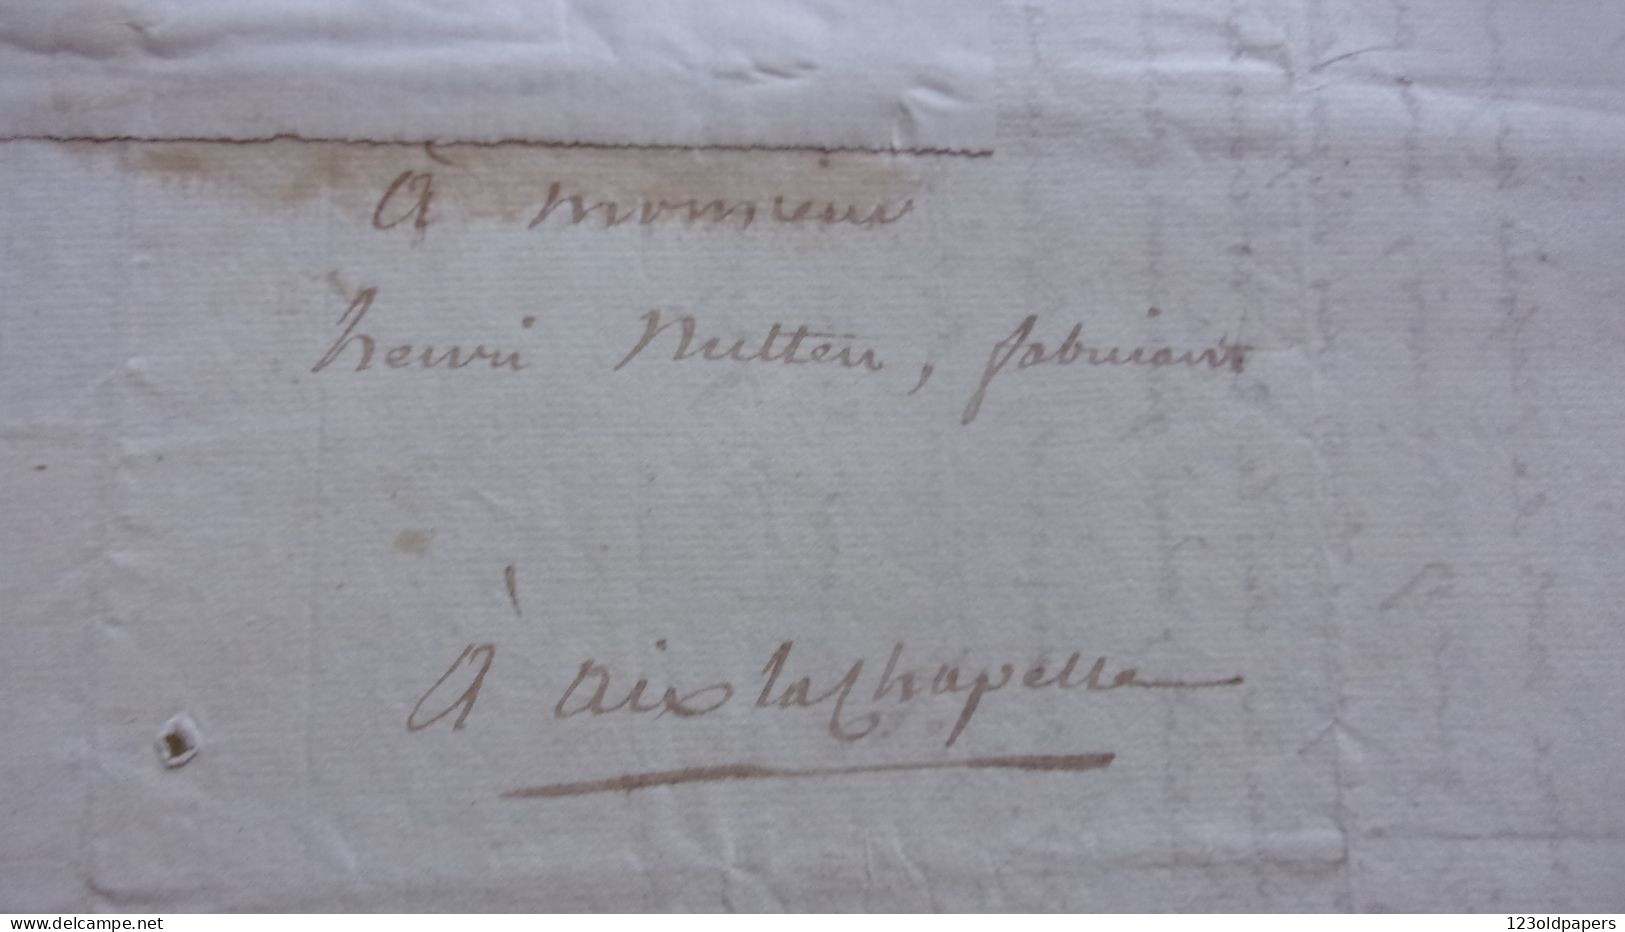 À monsieur
henri Nutten, fabricant
À aix la Chapelle
delcampe.net
123oldpapers